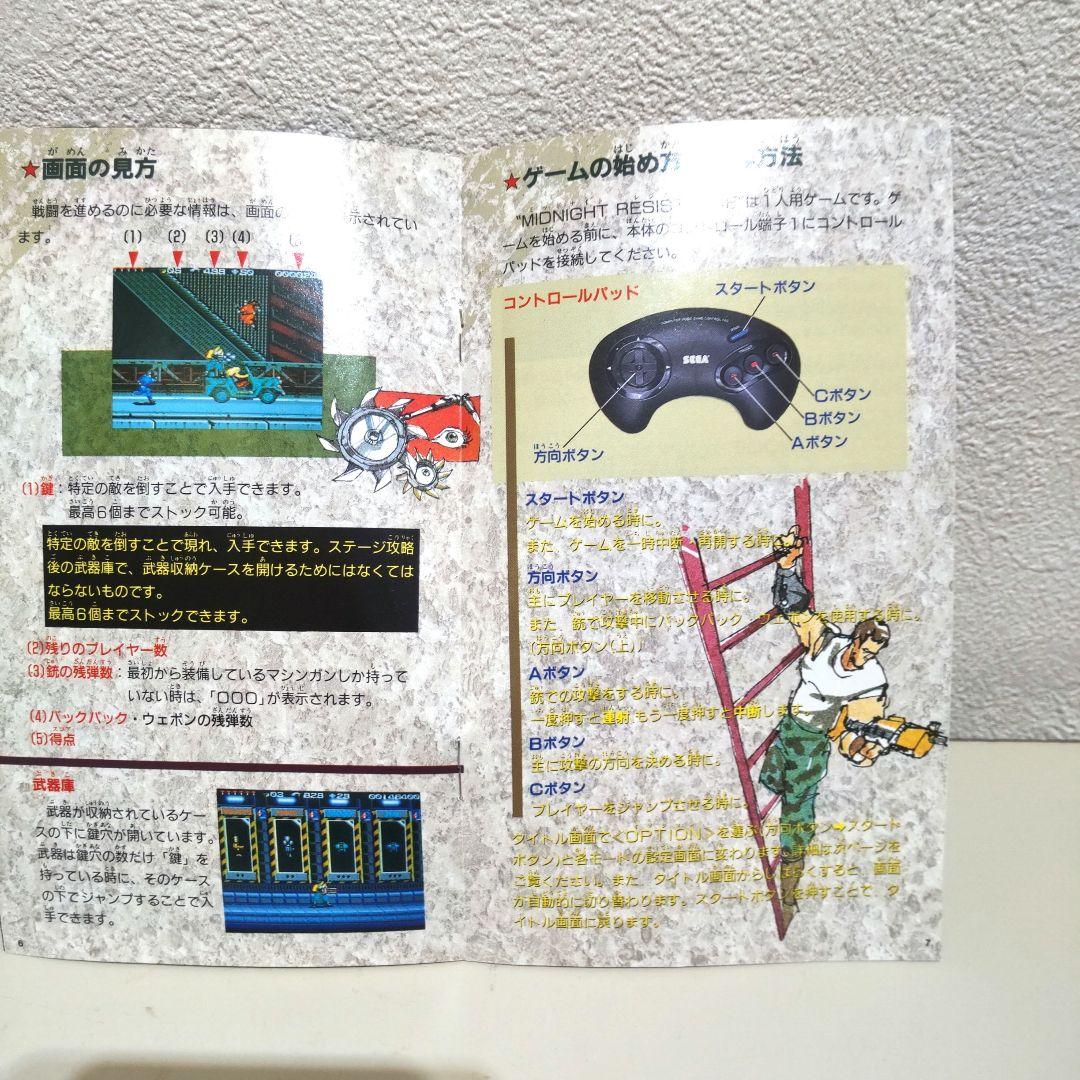 ★画面の見方
戦闘を進めるのに必要な情報は、画面の 示されてい
ます。
(1) (2) (3) (4)
(1)鍵：特定の敵を倒すことで入手できます。
最高6個までストック可能。
特定の敵を倒すことで現れ、入手できます。ステージ攻略
後の武器庫で、武器収納ケースを開けるためにはなくては
ならないものです。
最高6個までストックできます。
(2)残りのプレイヤー数
(3)銃の残弾数：最初から装備しているマシンガンしか持って
いない時は、「000」が表示されます。
(4)バックパック・ウェポンの残弾数
(5)得点
武器庫
武器が収納されているケー
スの下に鍵穴が開いています。
武器は鍵穴の数だけ「鍵」を
持っている時に、そのケース
の下でジャンプすることで入
手できます。
6
★ゲームの始め方 方法
“MIDNIGHT RESIS ”は1人用ゲームです。ゲ
ームを始める前に、本体のコントロール端子1にコントロール
パッドを接続してください。
コントロールパッド
スタートボタン
SEGA
Cボタン
Bボタン
Aボタン
方向ボタン
スタートボタン
ゲームを始める時に。
また、ゲームを一時中断・再開する時に。
方向ボタン
主にプレイヤーを移動させる時に。
また、銃で攻撃中にバックパック・ウエポンを使用する時に。
(方向ボタン(上))
Aボタン
銃での攻撃をする時に。
一度押すと連射、もう一度押すと中断します。
Bボタン
主に攻撃の方向を決める時に。
Cボタン
プレイヤーをジャンプさせる時に。
タイトル画面で<OPTION>を選ぶ(方向ボタン➡スタート
ボタン)と各モードの設定画面に変わります。詳細は ページを
ご覧ください。また、タイトル画面からしばらくすると、画面
が自動的に切り替わります。スタートボタンを押すことで、タ
イトル画面に戻ります。
7